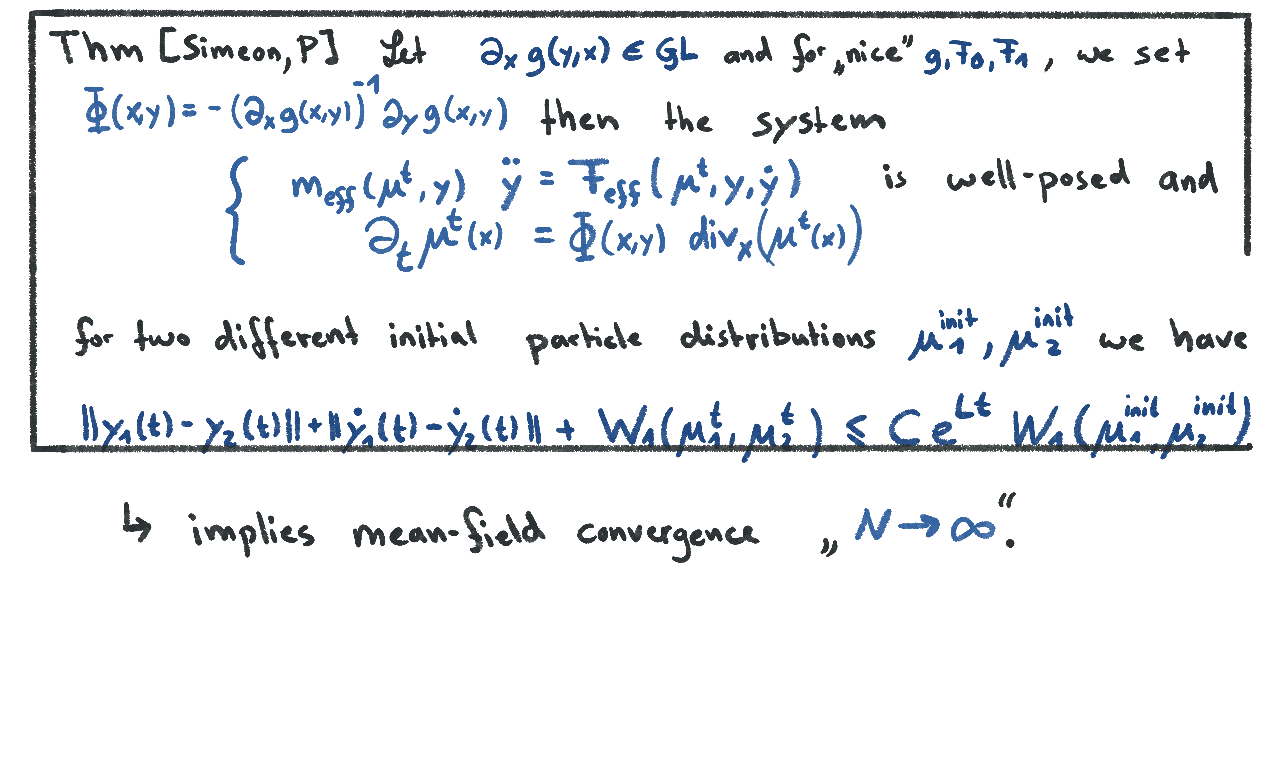 Thm [Simeon, P] Let ∂ₓ g(y,x) ∈ GL and for „nice" g, F₀, F₁, we set
Φ(x,y) = - (∂ₓg(x,y))⁻¹ ∂ᵧ g(x,y) then the system
{ m_eff(μᵗ, y) ÿ = F_eff(μᵗ, y, ẏ) is well-posed and
∂ₜ μᵗ(x) = Φ(x,y) divₓ(μᵗ(x))
for two different initial particle distributions μ₁^init, μ₂^init we have
||y₁(t) - y₂(t)|| + ||ẏ₁(t) - ẏ₂(t)|| + W₁(μ₁ᵗ, μ₂ᵗ) ≤ C e^{Lt} W₁(μ₁^init, μ₂^init)
↳ implies mean-field convergence „N → ∞".